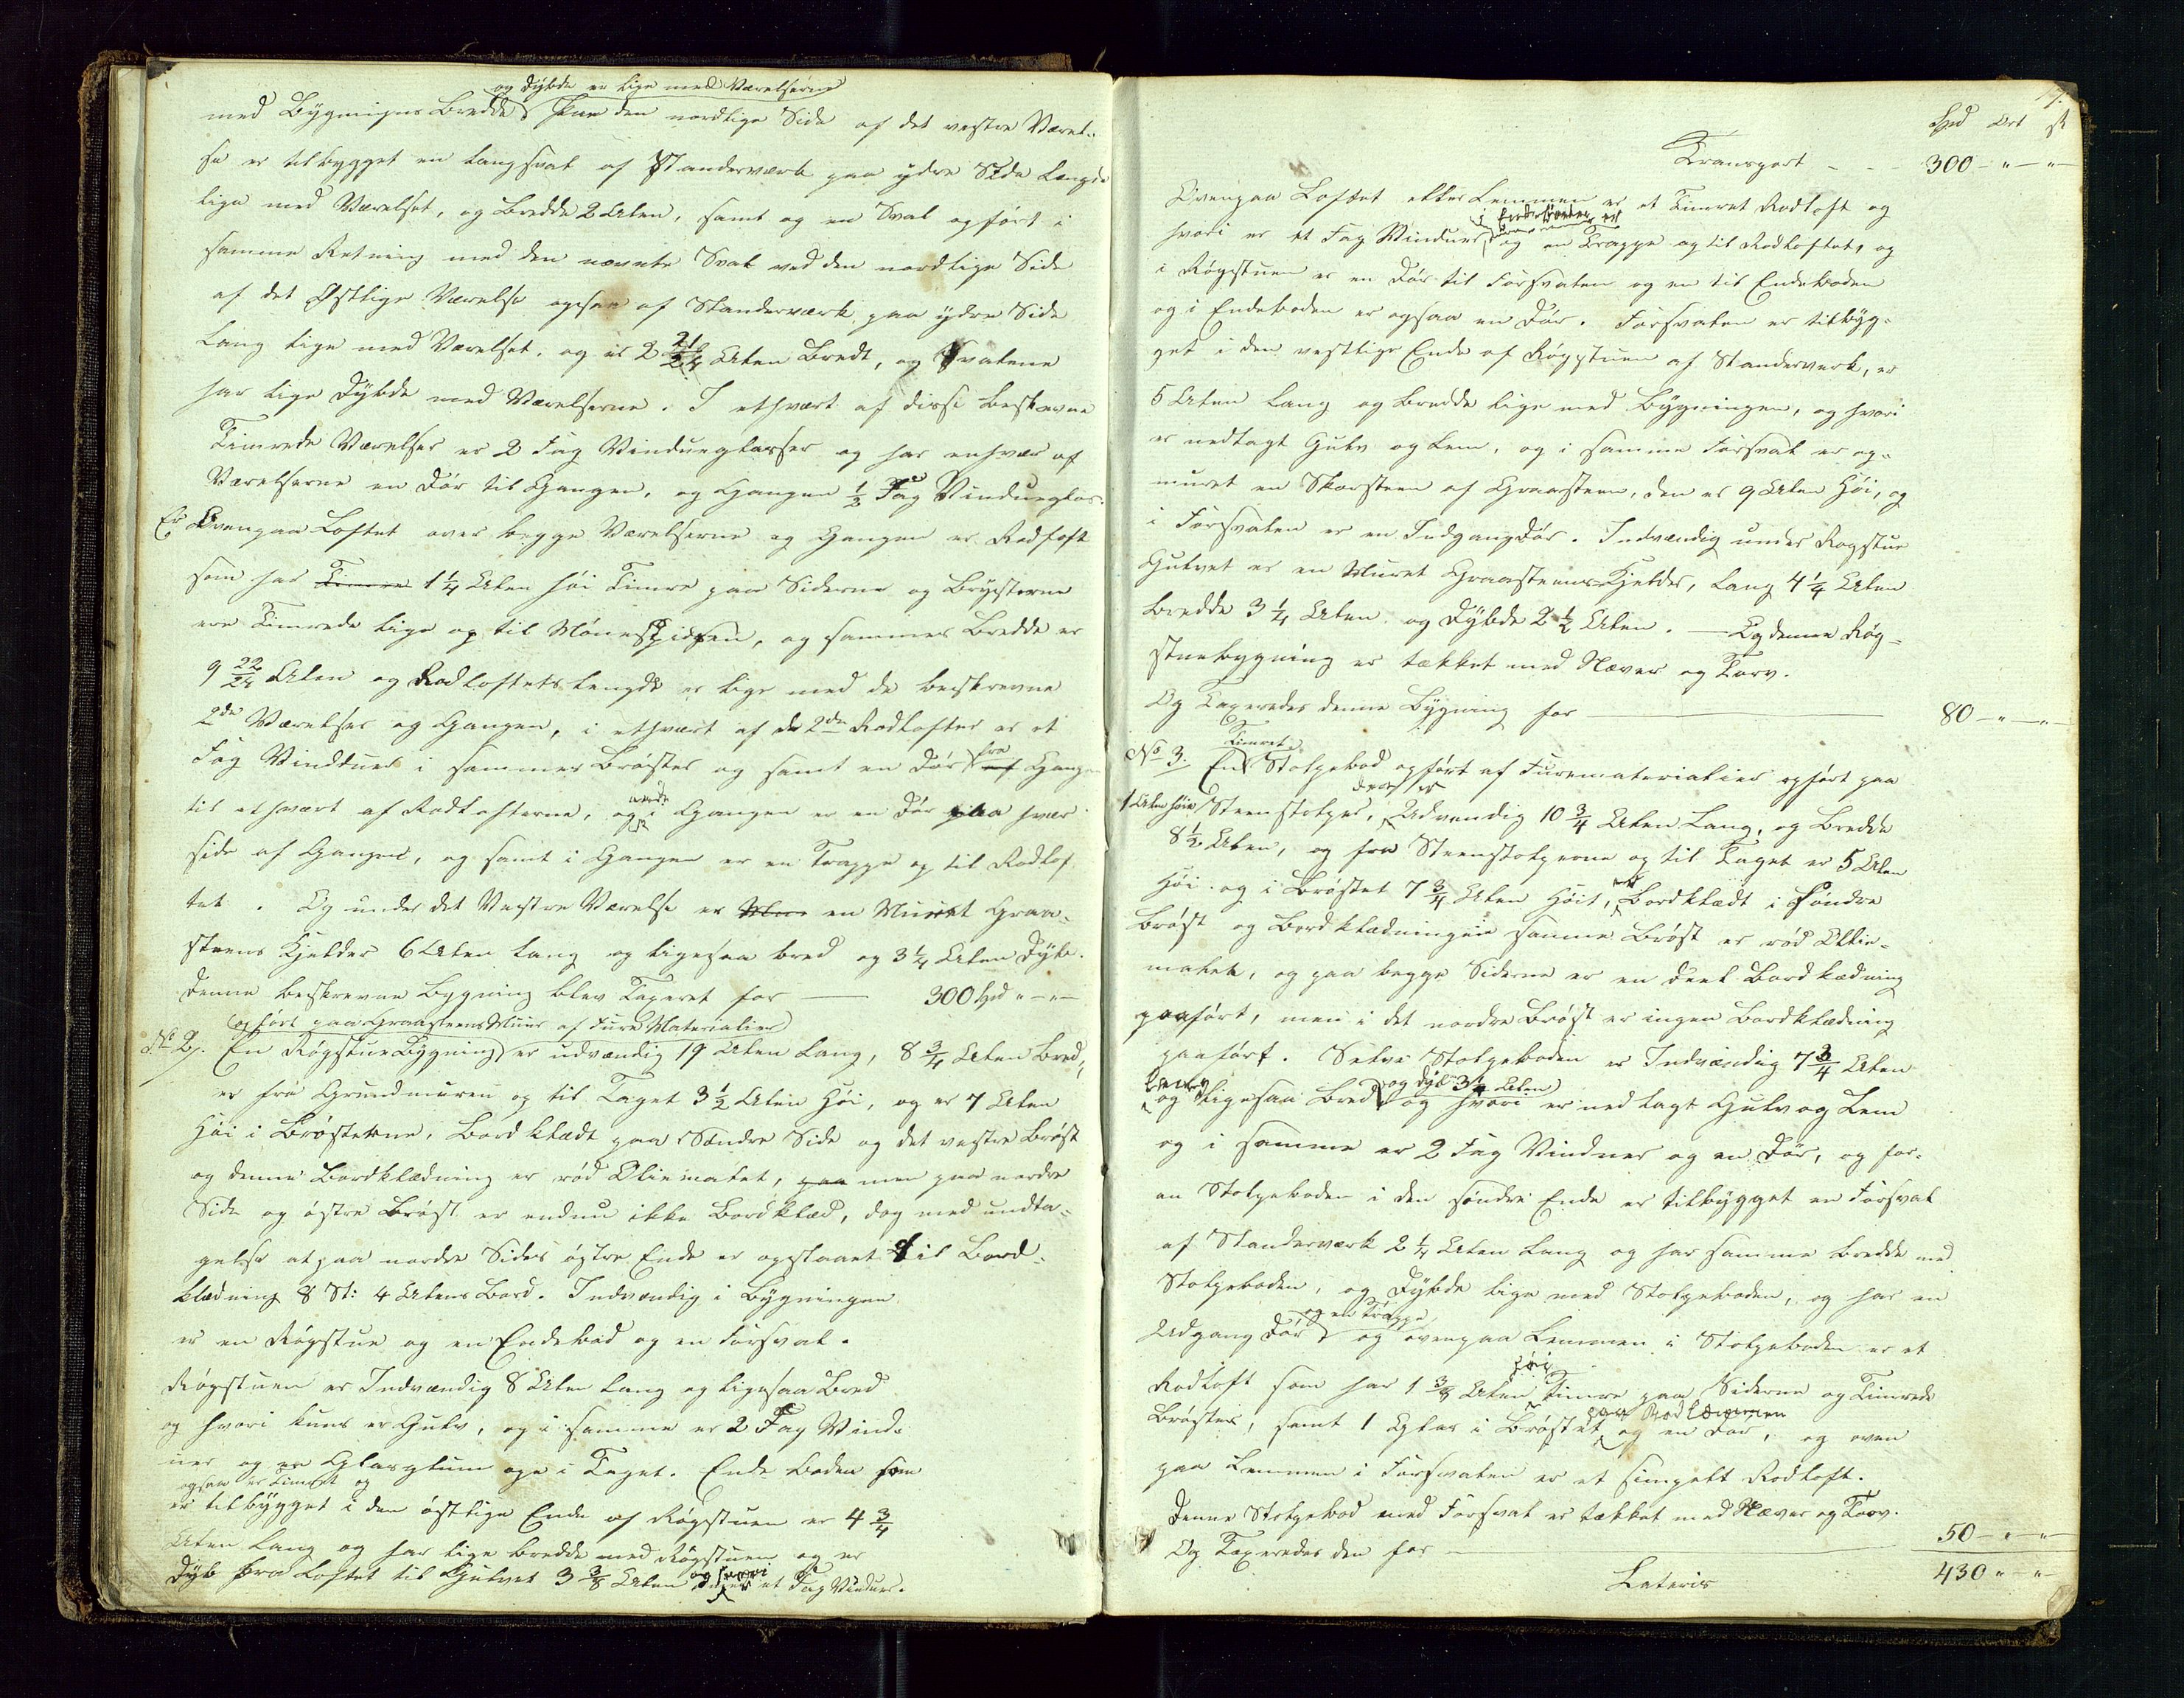 og Dybde er lige med Værelserne
med Bygnings Bredde paa den nordlige Side af det vestre Værel-
se er tilbygget en Langsval af Standerværk paa ydre Side Længde
lige med Værelset, og Bredde 2 Alen, samt og en Sval opført i
samme Retning med den nævnte Sval ved den nordlige Side
af det Østlige Værelse ogsaa af Standerværk, paa ydre Side
Lang lige med Værelset, og er 2 21/24 Alen Bredt, og Svalene
har lige Dybde med Værelserne. I ethvert af disse beskrevne
Timrede Værelser er 2 Fag Vinduesglasser og har enhver af
Værelserne en Dør til Gangen, og Gangen 1/2 Fag Vinduesglas.
Er Ovenpaa Loftet over begge Værelserne og Gangen er Rodloft
som har Timre 1 1/4 Alen høi Timre paa Siderne og Brysterne
ere Timrede lige op til Mønespidsen, og sammes Bredde er
9 22/24 Alen og Rodloftets Længde er lige med de beskrevne
2de Værelser og Gangen, i ethvert af de 2de Rodlofter er et
Fag Vinduer i sammes Brøster og samt en Dør fra af Gangen
til ethvert af Rodlofterne, og nede i Gangen er en Dør paa hver
side af Gangen, og samt i Gangen er en Trappe op til Rodlof
tet. Og under det Vestre Værelse er en Muret Graa-
steens Kjelder 6 Alen lang og ligesaa bred og 3 1/4 Alen Dyb.
Denne beskrevne Bygning blev Taxeret for — 300 Spd " — " —
opført paa Graasteens Muur af Furu Materialier
No 2. En Røgstue Bygning er udvændig 19 Alen Lang, 8 3/4 Alen Bred,
er fra Grundmuren op til Taget 3 1/2 Alen Høi, og er 7 Alen
Høi i Brøsterne, Bordklædt paa Søndre Side og det vestre Brøst
og denne Bordklædning er rød Oliemalet, paa men paa nordre
Side og østre Brøst er endnu ikke Bordklæd, dog med undta-
gelse at paa nordre Sides østre Ende er opslaaet til Bord-
klædning 8 St: 4 Alens Bord. Indvændig i Bygningen
er en Røgstue og en Endebod og en Forsval.
Røgstuen er Indvændig 8 Alen lang og ligesaa Bred
og hvori kuns er Gulv, og i samme er 2 Fag Vind-
uer og en Glasglum oge i Taget. Ende Boden som
ogsaa er Timret og
er tilbygget i den østlige Ende af Røgstuen er 4 3/4
Alen Lang og har lige Bredde med Røgstuen og er
Dyb fra Loftet til Gulvet 3 3/8 Alen og hvori er et Fag Vinduer.
Spd Ort s
Transport - - 300 - " - " -
Ovenpaa Loftet eller Lemmen er et Timret Rodloft og
hvori er et Fag Vinduer i Endeboden og en Trappe op til Rodloftet, og
i Røgstuen er en Dør til Forsvalen og en til Endeboden
og i Endeboden er ogsaa en Dør. Forsvalen er tilbyg-
get i den vestlige Ende af Røgstuen af Standerverk, er
5 Alen Lang og Bredde lige med Bygningen, og hvori
er nedlagt Gulv og Lem, og i samme Forsval er op-
muret en Skorsteen af Graasteen, den er 9 Alen Høi, og
i Forsvalen er en Indgangdør. Indvændig under Rogstue
Gulvet er en Muret Graasteens-Kjelder, Lang 4 1/4 Alen
Bredde 3 1/4 Alen og Dybde 2 1/2 Alen. — Og denne Røg-
stuebygning er takket med Næver og Torv.
Og Taxeredes denne Bygning for — 80 - " - " -
No 3. En Timret Stolpebod opført af Furumaterialier opført paa
1 Alen høie Steenstolper, den er Udvendig 10 3/4 Alen Lang, og Bredde
8 1/2 Alen, og fra Steenstolperne op til Taget er 5 Alen
Høi og i Brøstet 7 3/4 Alen Høit, er Bordklædt i Søndre
Brøst og Bordklædningen i samme Brøst er rød Ollie-
malet, og paa begge Siderne er en deel Bordklædning
paaført, men i det nordre Brøst er ingen Bordklædning
paaført. Selve Stolpeboden er Indvændig 7 3/4 Alen
Lang og ligesaa Bred og Dyb 3 1/4 Alen og hvori er nedlagt Gulv og Lem
og i samme er 2 Fag Vinduer og en Dør, og for-
an Stolpeboden i den søndre Ende er tilbygget en Forsval
af Standerværk 2 1/4 Alen Lang og har samme Bredde med
Stolpeboden, og Dybde lige med Stolpeboden, og har en
Udgang Dør og en Trappe og ovenpaa Lemmen i Stolpeboden er et
Rodloft som har 1 3/8 Alen høi Timre paa Siderne og Timrede
Brøster, samt 1 Glas i Brøstet paa Rodlemmen og en Dør, og oven
paa Lemmen i Forsvalen er et simpelt Rodloft.
Denne Stolpebod med Forsval er takket med Næver og Torv.
Og Taxeredes den for — 50 - " - " -
Lateris 430 " - " -